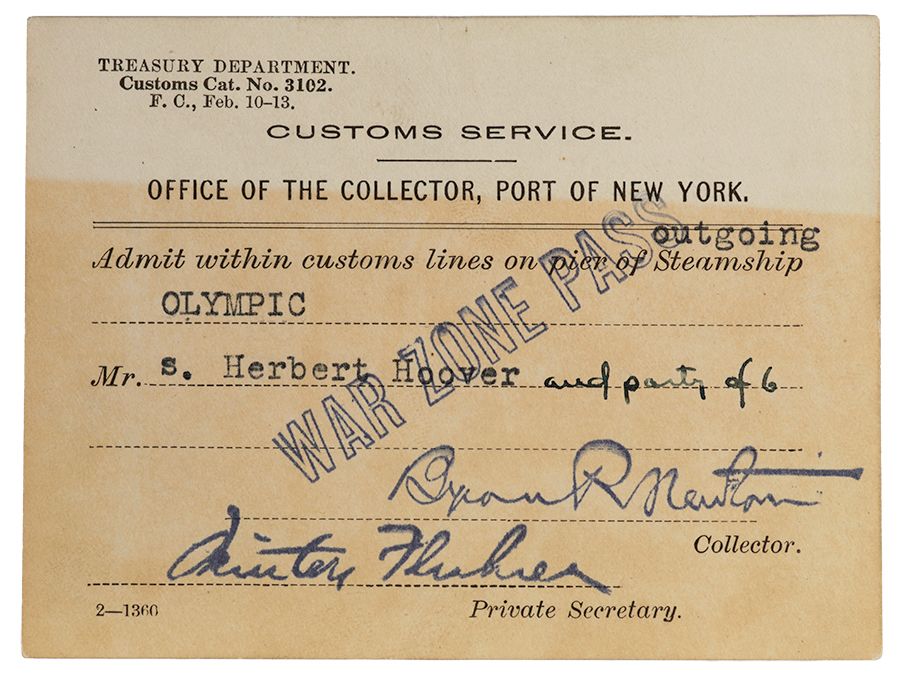 TREASURY DEPARTMENT.
Customs Cat. No. 3102.
F. C., Feb. 10–13.
CUSTOMS SERVICE.
OFFICE OF THE COLLECTOR, PORT OF NEW YORK.
outgoing
Admit within customs lines on pier of Steamship
OLYMPIC
Mr. s. Herbert Hoover and party of 6
WAR ZONE PASS
Byron R Newton
Collector.
2—1360
Private Secretary.